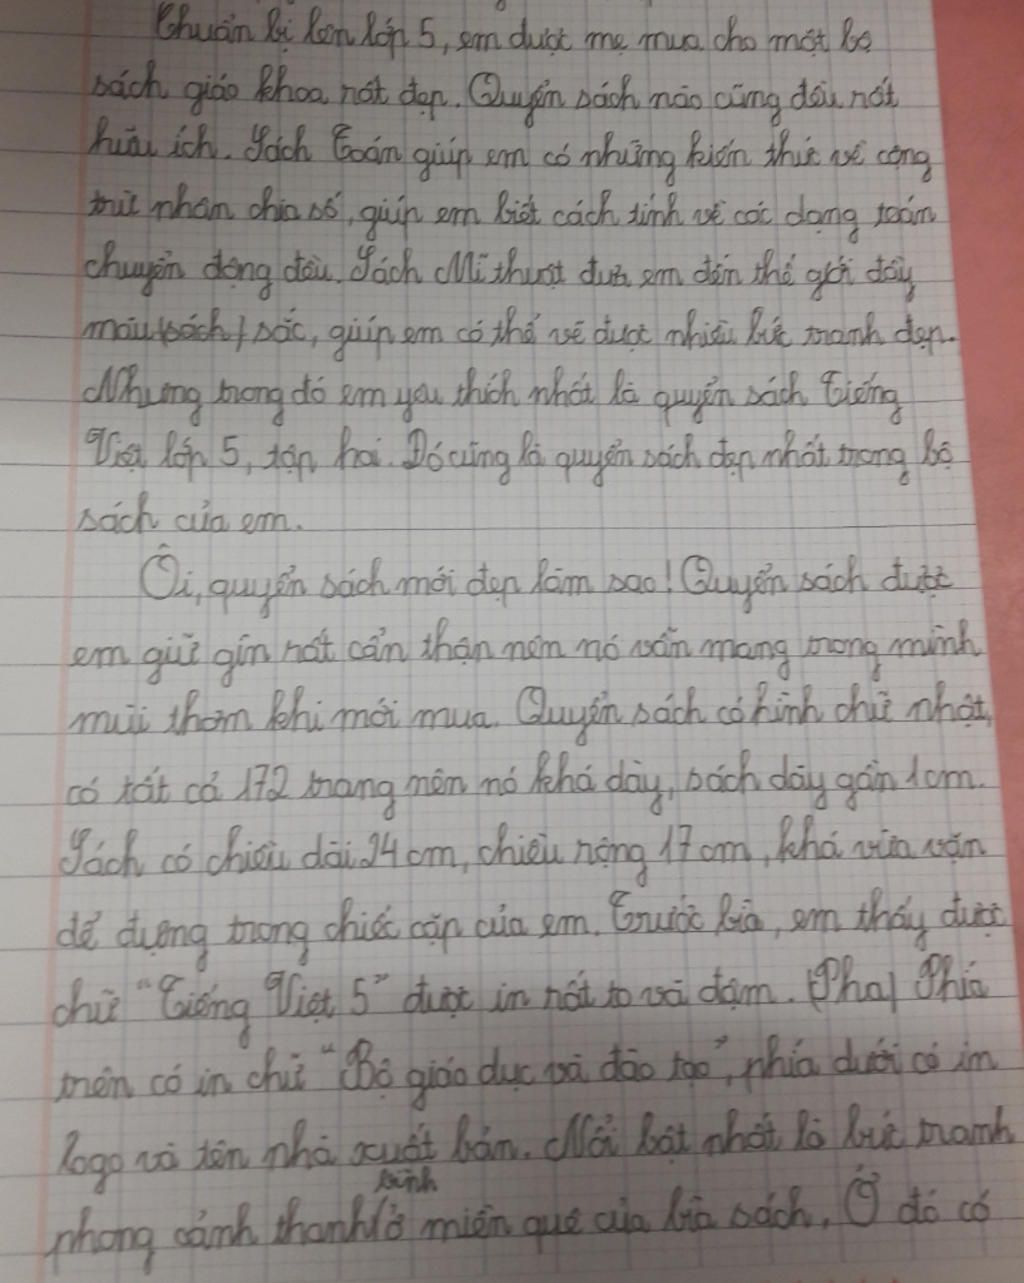 Chuẩn bị lên lớp 5, em được mẹ mua cho một bộ
sách giáo khoa rất đẹp. Quyển sách nào cũng đều rất
hữu ích. Sách Toán giúp em có những kiến thức về cộng
trừ nhân chia số, giúp em biết cách tính về các dạng toán
chuyển động đều. Sách Mĩ thuật đưa em đến thế giới đầy
màu (sách) sắc, giúp em có thể vẽ được nhiều bức tranh đẹp.
Nhưng trong đó em yêu thích nhất là quyển sách Tiếng
Việt lớp 5, tập hai. Đó cũng là quyển sách đẹp nhất trong bộ
sách của em.
Ôi, quyển sách mới đẹp làm sao! Quyển sách được
em giữ gìn rất cẩn thận nên nó vẫn mang trong mình
mùi thơm khi mới mua. Quyển sách có hình chữ nhật,
có tất cả 172 trang nên nó khá dày, sách dày gần 1cm.
Sách có chiều dài 24 cm, chiều rộng 17 cm, khá vừa vặn
để đựng trong chiếc cặp của em. Trước bìa, em thấy được
chữ "Tiếng Việt 5" được in rất to và đậm. (Pha) Phía
trên có in chữ "Bộ giáo dục và đào tạo", phía dưới có in
logo và tên nhà xuất bản. Nổi bật nhất là bức tranh
phong cảnh thanh bình ở miền quê của bìa sách. Ở đó có